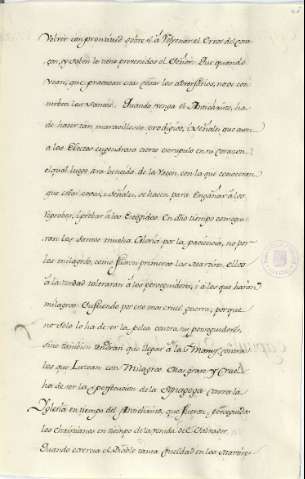 Volver con prontitud sobre si, a refrenar el error de cora-
con, y saben lo tiene prevenidos el Señor. Que quando
vean, que practican esas cosas los adversarios, no se con-
turben las manos. Quando venga el Antichristo, ha
de hacer tan maravillosos prodigios, i Señales que aun
a los Electos engendrara cierto escrupulo en su corazon
el qual luego sera vencido de la razon, con la que conoceran
que estas cosas, i señales, se hacen para Engañar a los
Reprobos, i probar a los Escogidos. En dho tiempo consegui-
ran los Santos mucha Gloria por la paciencia, no por
los milagros, como fueron primeros los Martires, ellos
a la verdad toleraran a los perseguidores, i a los que haran
milagros sufriendo por esto mas cruel guerra; porque
no solo lo ha de ser la pelea contra sus perseguidores,
sino tambien tendran que llegar a las Manos contra
los que Luzcan con Milagros. Mas grave, y Cruel
ha de ser la persecucion de la Synagoga contra la
Yglesia en tiempo del Antichristo, que fueron perseguidos
los Christianos en tiempo de la venida del Salvador.
Quando exercia el Diablo tanta crueldad en los Martires